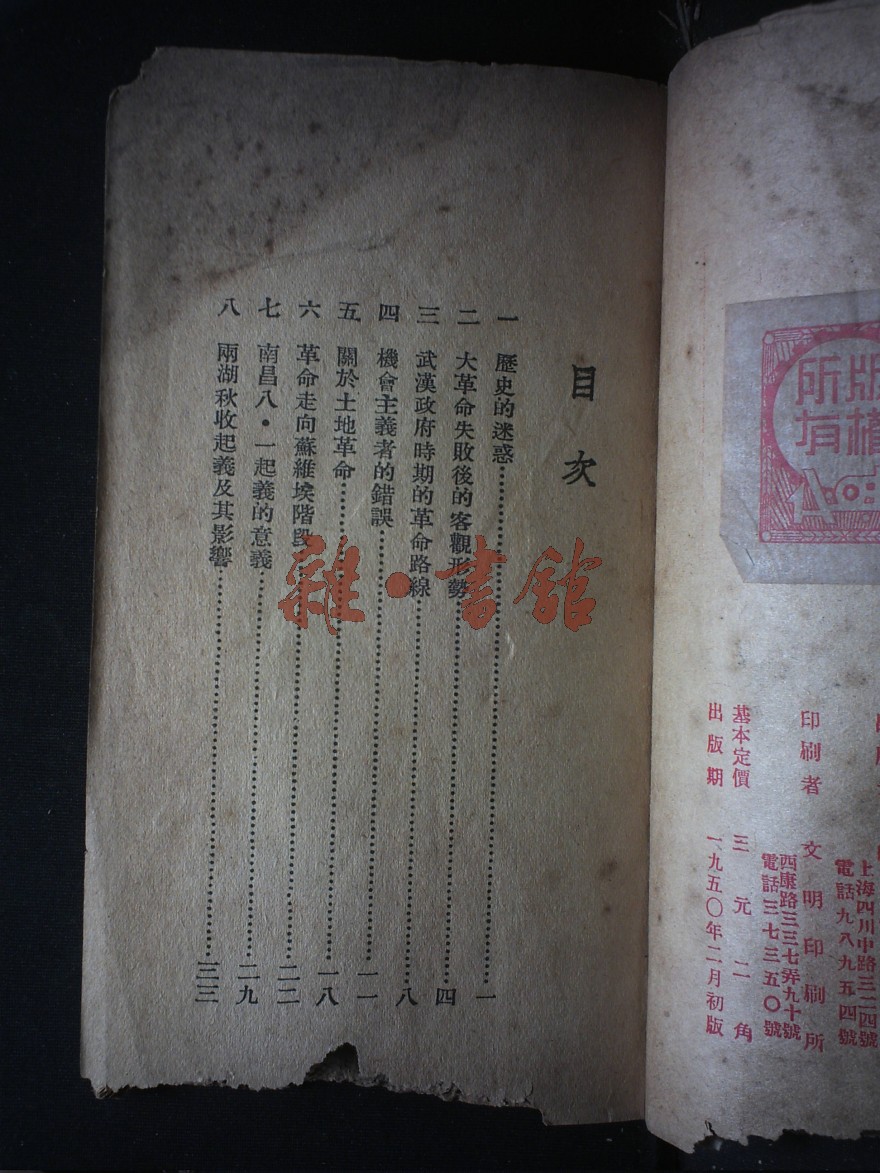 版權
所有
上海四川中路三二四號
電話九八九五四號
印刷者 文明印刷所
西康路三三七弄九十號
電話三七三五〇號
基本定價 三元二角
出版期 一九五〇年二月初版
目次
一 歷史的迷惑 一
二 大革命失敗後的客觀形勢 四
三 武漢政府時期的革命路線 八
四 機會主義者的錯誤 一一
五 關於土地革命 一八
六 革命走向蘇維埃階段 二二
七 南昌八·一起義的意義 二九
八 兩湖秋收起義及其影響 三三
雜·書館